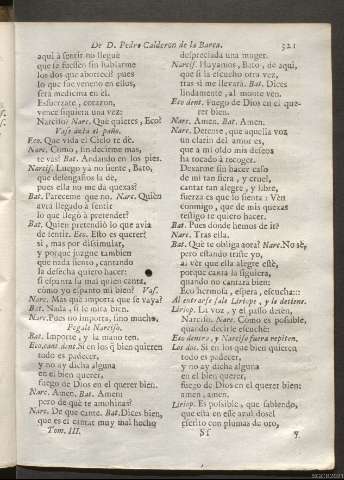 De D. Pedro Calderon de la Barca. 321
aqui à sentir no lleguè
que se fuessen sin hablarme
los dos que aborreci! pues
lo que fue veneno en ellos,
serà medicina en èl.
Esfuerzate, corazon,
vence siquiera una vez:
Narciso? Narc. Què quieres, Eco?
Vase ázia el paño.
Eco. Que vida el Cielo te dè.
Narc. Como, sin decirme mas,
te vàs? Bat. Andando en los pies.
Narcis. Luego yà no siente, Bato,
que desengaños la dè,
pues ella no me dà quexas?
Bat. Pareceme que no. Narc. Quièn
avrà llegado à sentir
lo que llegò à pretender?
Bat. Quien pretendiò lo que avia
de sentir. Eco. Esto es querer?
si, mas por dissimular,
y porque juzgue tambien
que nada siento, cantando
la desecha quiero hacer:
si espanta su mal quien canta,
còmo yo espanto mi bien? Vas.
Narc. Mas què importa que se vaya?
Bat. Nada, si se mira bien.
Narc. Pues no importa, sino mucho.
Pegale Narciso.
Bat. Importe, y la mano ten.
Eco cant. dent. Si en los q̃ bien quieren
todo es padecer,
y no ay dicha alguna
en el bien querer,
fuego de Dios en el querer bien.
Narc. Amen. Bat. Amen:
pero de què te amohinas?
Narc. De que cante. Bat. Dices bien,
que es el cantar muy mal hecho
Tom. III.
despreciada una muger.
Narcis. Huyamos, Bato, de aqui,
que si la escucho otra vez,
tras si me llevarà. Bat. Dices
lindamente, al monte ven.
Eco dent. Fuego de Dios en el que-
rer bien.
Narc. Amen. Bat. Amen.
Narc. Detente, que aquella voz
un clarin del amor es,
que à mi oido mis deseos
ha tocado à recoger.
Dexarme sin hacer caso
de mi tan fiera, y cruel,
cantar tan alegre, y libre,
fuerza es que lo sienta: Ven
conmigo, que de mis quexas
testigo te quiero hacer.
Bat. Pues donde hemos de ir?
Narc. Tras ella.
Bat. Què te obliga aora? Narc. No sè,
pero estando triste yo,
al vèr que ella alegre estè,
porque canta la siguiera,
quando no cantara bien:
Eco hermosa, espera, escucha:::
Al entrarse sale Liriope, y le detiene.
Liriop. La voz, y el passo detèn,
Narciso. Narc. Còmo es possible,
quando decirle escuchè:
Eco dentro, y Narciso fuera repiten.
Los dos. Si en los que bien quieren
todo es padecer,
y no ay dicha alguna
en el bien querer,
fuego de Dios en el querer bien:
amen, amen.
Liriop. Es possible, que sabiendo,
que està en esse azul dosel
escrito con plumas de oro,
Sf y